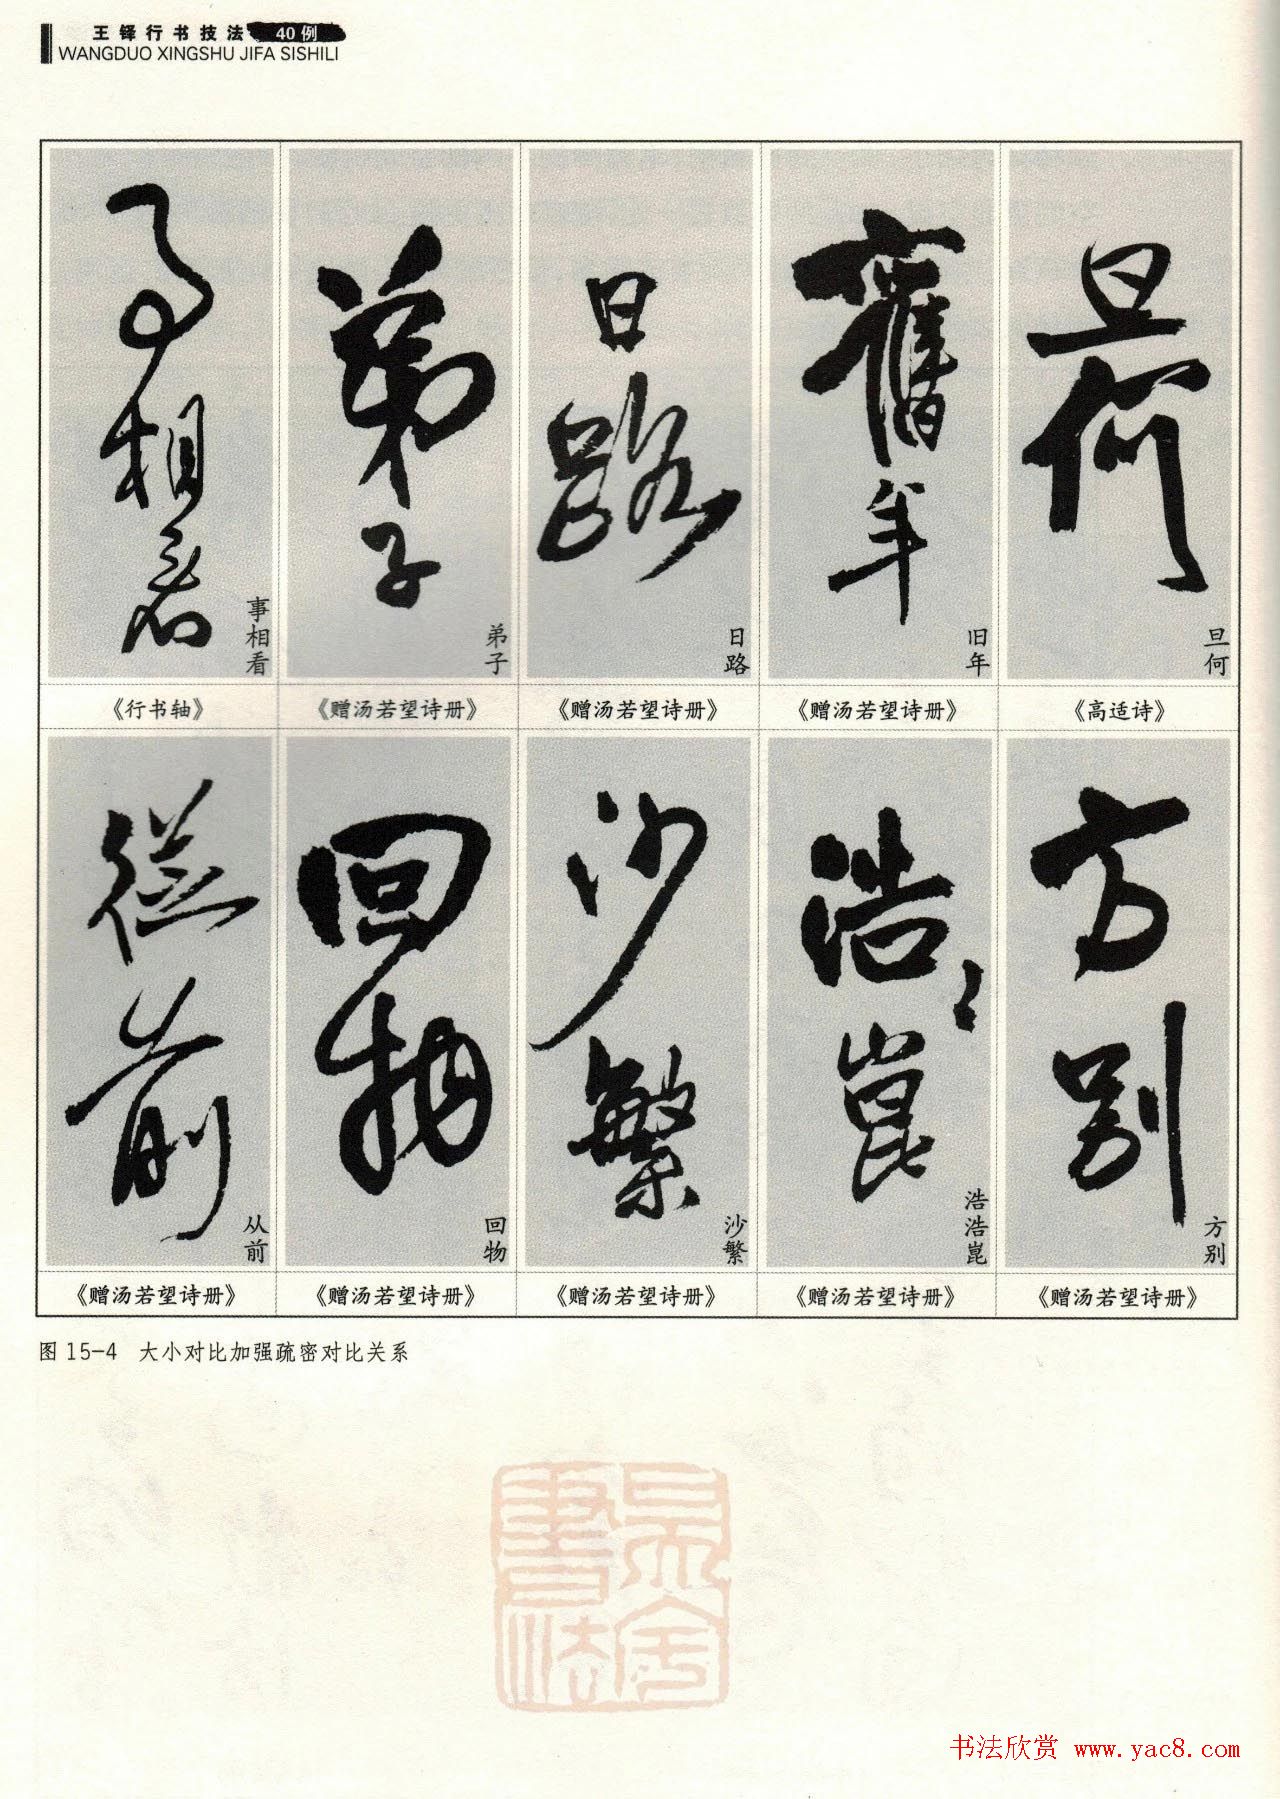 王铎行书技法 40例
WANGDUO XINGSHU JIFA SISHILI
事相看
弟子
日路
旧年
旦何
《行书轴》
《赠汤若望诗册》
《赠汤若望诗册》
《赠汤若望诗册》
《高适诗》
从前
回物
沙繁
浩浩崑
方别
《赠汤若望诗册》
《赠汤若望诗册》
《赠汤若望诗册》
《赠汤若望诗册》
《赠汤若望诗册》
图 15-4 大小对比加强疏密对比关系
书法欣赏 www.yac8.com